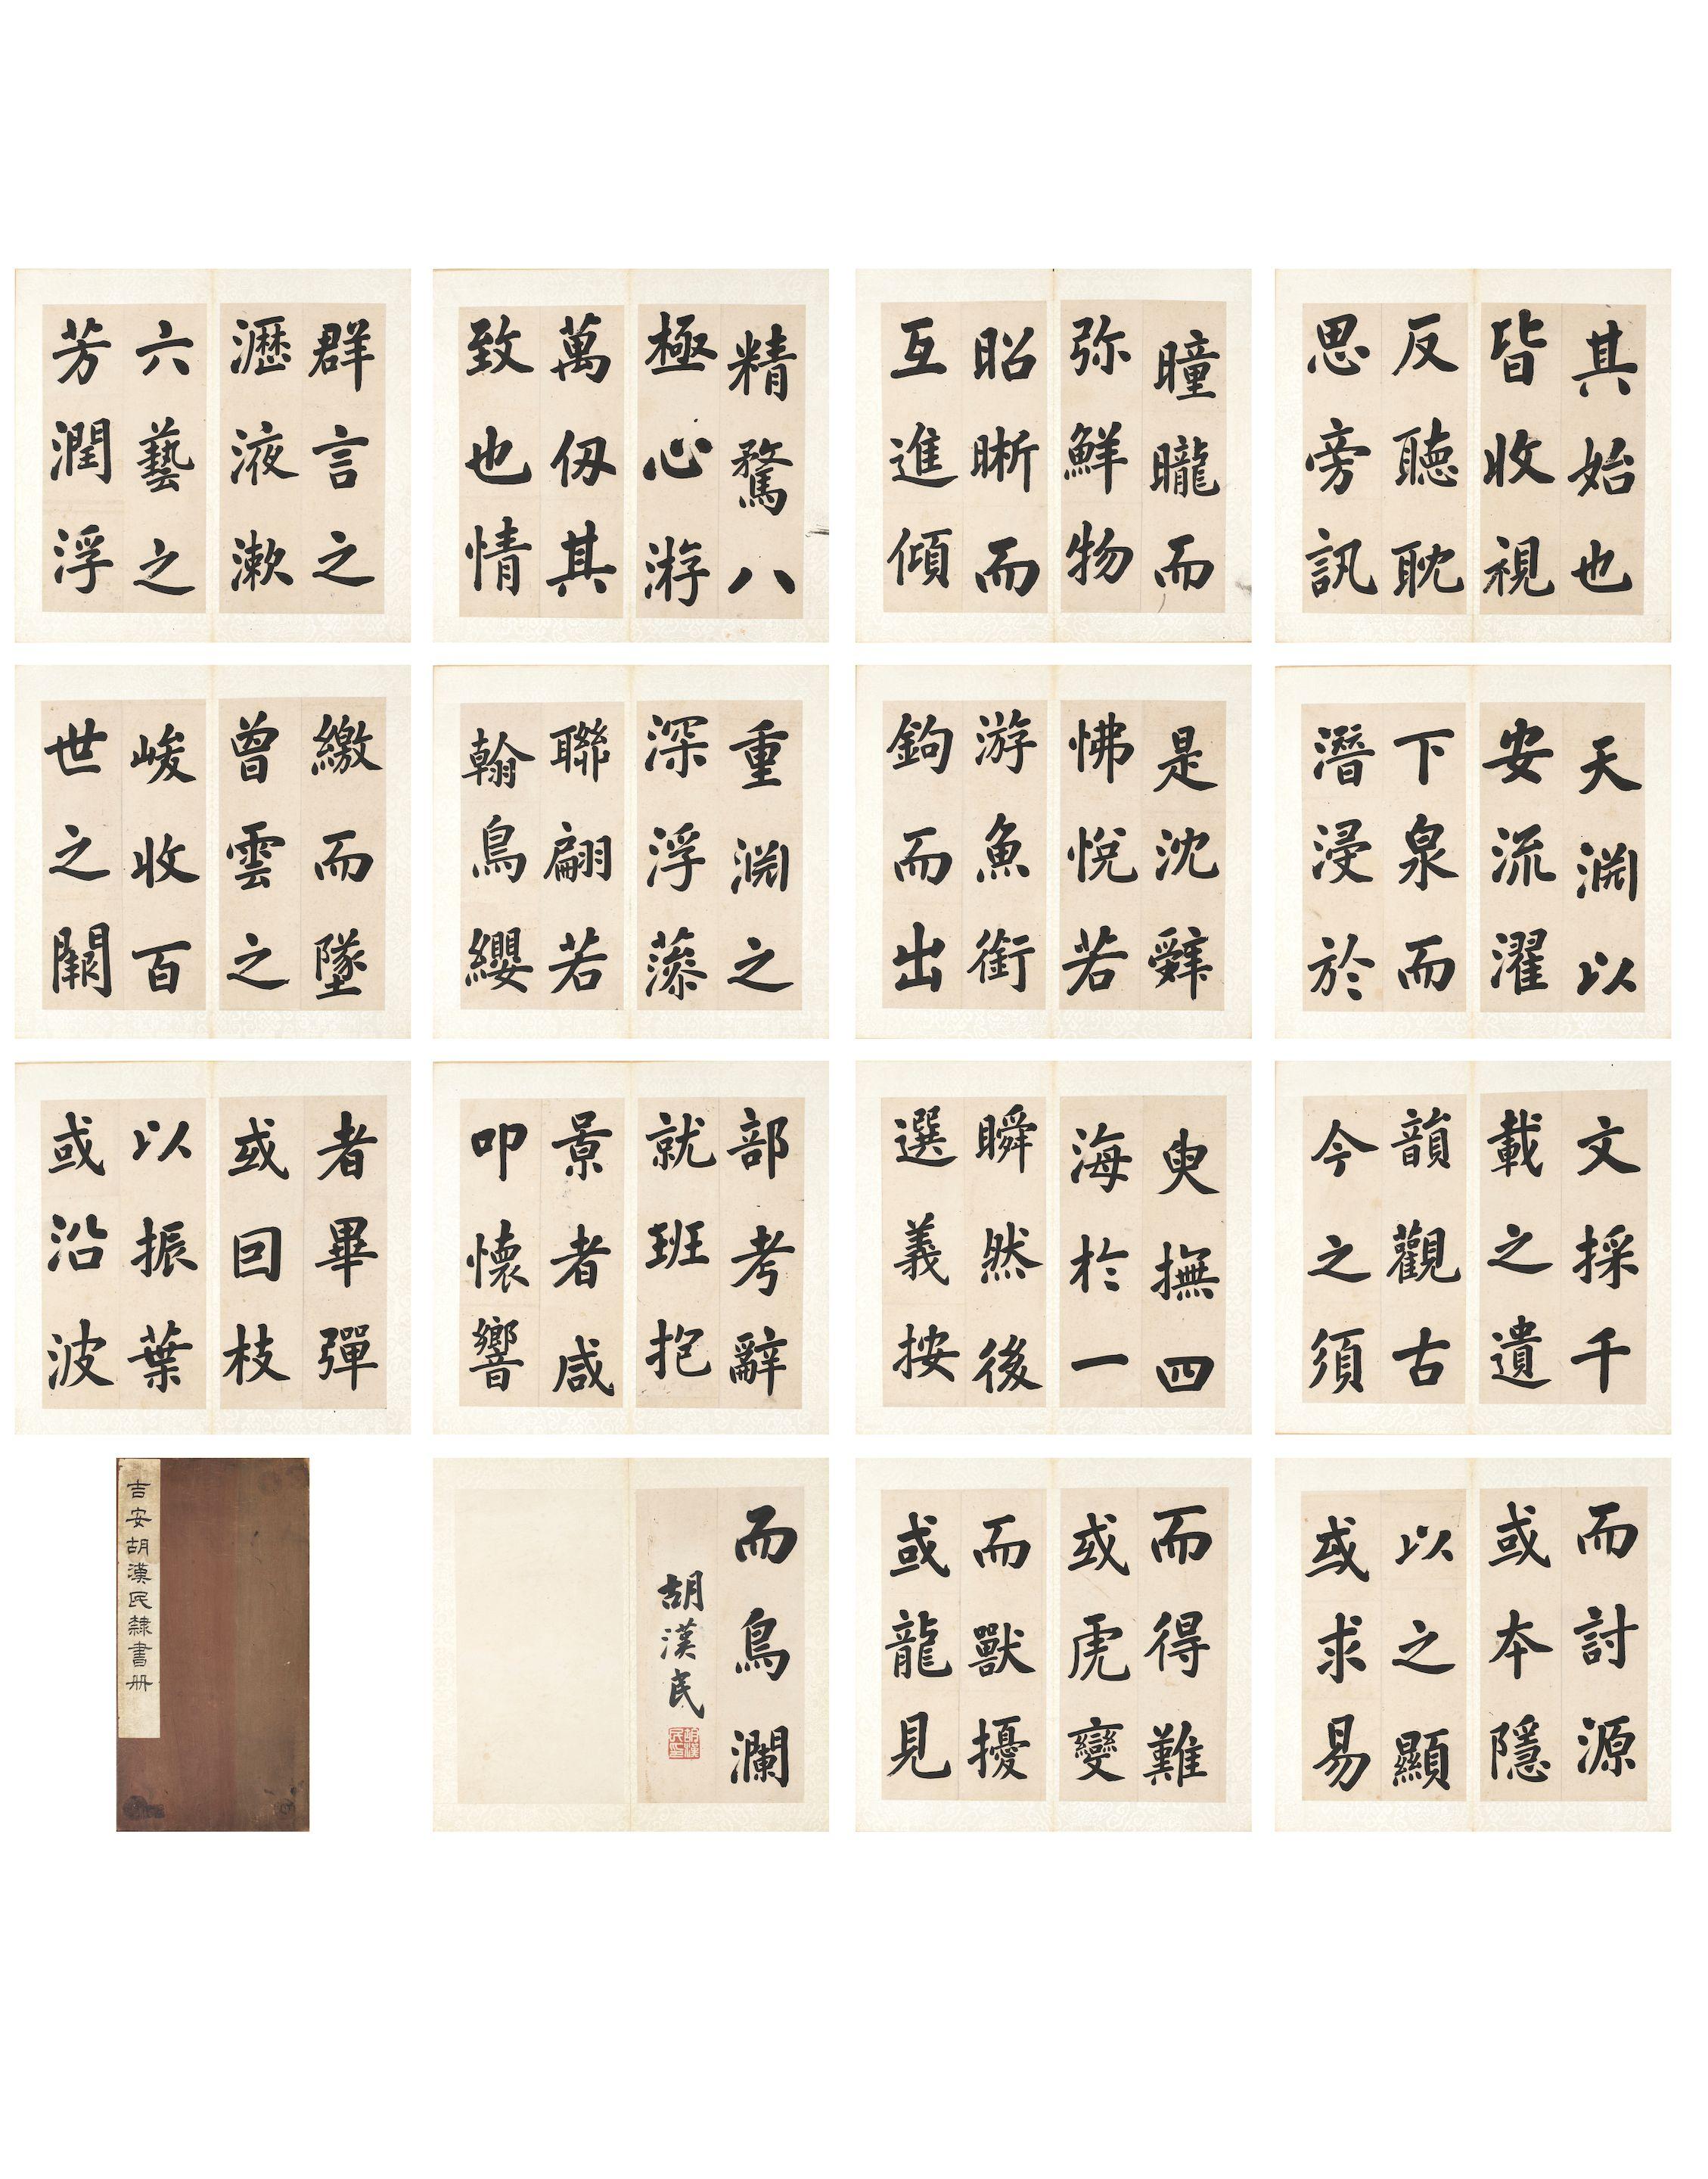 其始也
皆收視
反聽耽
思旁訊
精騖八
極心游
萬仞其
致也情
曈曨而
弥鮮物
昭晰而
互進傾
群言之
瀝液漱
六藝之
芳潤浮
天淵以
安流濯
下泉而
潛浸於
是沈辭
怫悅若
游魚銜
鉤而出
重淵之
深浮藻
聯翩若
翰鳥纓
繳而墜
曾雲之
峻收百
世之闕
文採千
載之遺
韻觀古
今之須
臾撫四
海於一
瞬然後
選義按
部考辭
就班抱
景者咸
叩懷響
者畢彈
或囙枝
以振葉
或沿波
而討源
或本隱
以之顯
或求易
而得難
或虎變
而獸擾
或龍見
而鳥瀾
胡漢民
胡漢民印
吉安胡漢民隸書册